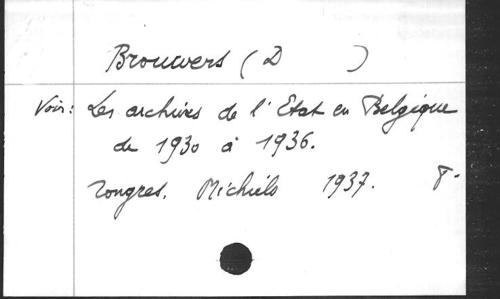 Brouwers (D )
Voir: Les archives de l'Etat en Belgique
de 1930 à 1936.
Tongres. Michiels 1937. 8°